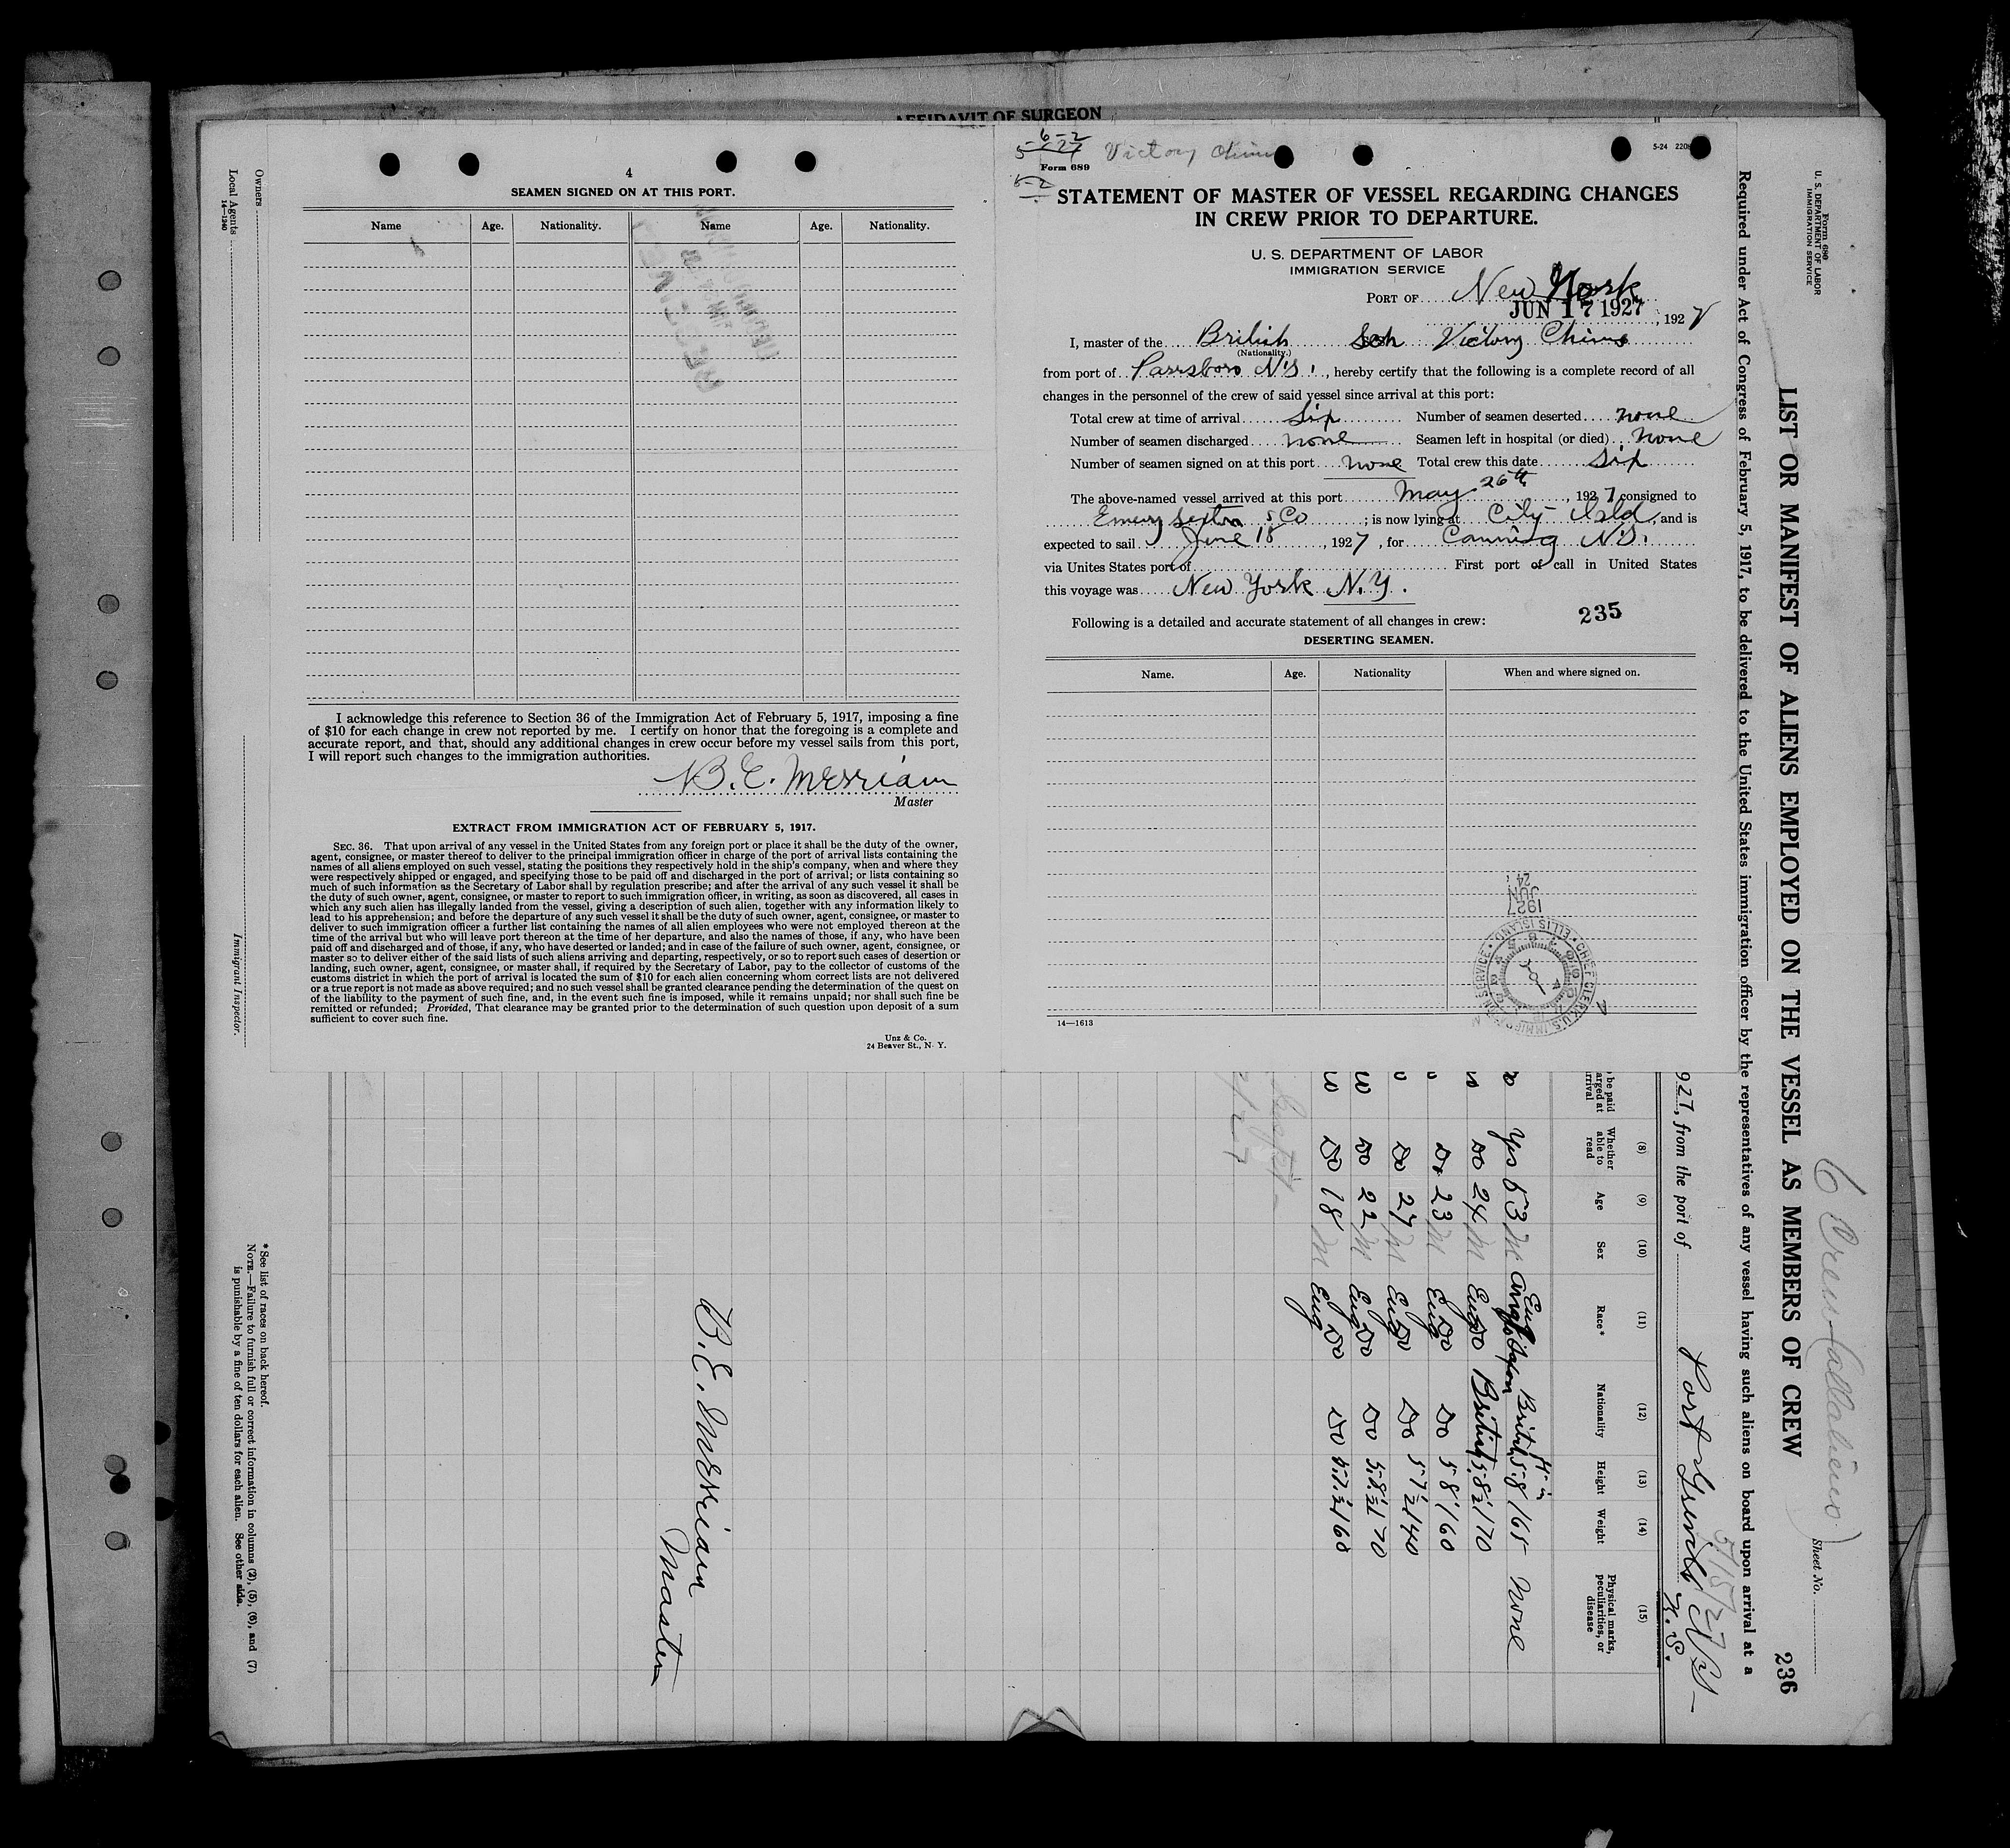 AFFIDAVIT OF SURGEON
4
SEAMEN SIGNED ON AT THIS PORT.
Name Age. Nationality. Name Age. Nationality.
I acknowledge this reference to Section 36 of the Immigration Act of February 5, 1917, imposing a fine
of $10 for each change in crew not reported by me. I certify on honor that the foregoing is a complete and
accurate report, and that, should any additional changes in crew occur before my vessel sails from this port,
I will report such changes to the immigration authorities.
B. E. Merriam
Master
EXTRACT FROM IMMIGRATION ACT OF FEBRUARY 5, 1917.
SEC. 36. That upon arrival of any vessel in the United States from any foreign port or place it shall be the duty of the owner,
agent, consignee, or master thereof to deliver to the principal immigration officer in charge of the port of arrival lists containing the
names of all aliens employed on such vessel, stating the positions they respectively hold in the ship's company, when and where they
were respectively shipped or engaged, and specifying those to be paid off and discharged in the port of arrival; or lists containing so
much of such information as the Secretary of Labor shall by regulation prescribe; and after the arrival of any such vessel it shall be
the duty of such owner, agent, consignee, or master to report to such immigration officer, in writing, as soon as discovered, all cases in
which any such alien has illegally landed from the vessel, giving a description of such alien, together with any information likely to
lead to his apprehension; and before the departure of any such vessel it shall be the duty of such owner, agent, consignee, or master to
deliver to such immigration officer a further list containing the names of all alien employees who were not employed thereon at the
time of the arrival but who will leave port thereon at the time of her departure, and also the names of those, if any, who have been
paid off and discharged and of those, if any, who have deserted or landed; and in case of the failure of such owner, agent, consignee, or
master so to deliver either of the said lists of such aliens arriving and departing, respectively, or so to report such cases of desertion or
landing, such owner, agent, consignee, or master shall, if required by the Secretary of Labor, pay to the collector of customs of the
customs district in which the port of arrival is located the sum of $10 for each alien concerning whom correct lists are not delivered
or a true report is not made as above required; and no such vessel shall be granted clearance pending the determination of the quest on
of the liability to the payment of such fine, and, in the event such fine is imposed, while it remains unpaid; nor shall such fine be
remitted or refunded; Provided, That clearance may be granted prior to the determination of such question upon deposit of a sum
sufficient to cover such fine.
Unz & Co.
24 Beaver St., N. Y.
Victory Chimes
Form 689
5-24
STATEMENT OF MASTER OF VESSEL REGARDING CHANGES
IN CREW PRIOR TO DEPARTURE.
U. S. DEPARTMENT OF LABOR
IMMIGRATION SERVICE
PORT OF New York
JUN 17 1927, 1927
I, master of the British Sch Victory Chimes
(Nationality.)
from port of Parrsboro N.S., hereby certify that the following is a complete record of all
changes in the personnel of the crew of said vessel since arrival at this port:
Total crew at time of arrival Six Number of seamen deserted none
Number of seamen discharged none Seamen left in hospital (or died) None
Number of seamen signed on at this port none Total crew this date Six
The above-named vessel arrived at this port May 26th, 1927 consigned to
Emery Sexton & Co; is now lying at City Isld, and is
expected to sail June 18, 1927, for Canning N.S.
via Unites States port of First port of call in United States
this voyage was New York N.Y.
Following is a detailed and accurate statement of all changes in crew: 235
DESERTING SEAMEN.
Name. Age. Nationality When and where signed on.
1927
JUN
24
CHIEF CLERK U.S. IMMIGRATION SERVICE • ELLIS ISLAND
14—1613
Form 680
U. S. DEPARTMENT OF LABOR
IMMIGRATION SERVICE
6 Crew (all aliens)
Sheet No.
236
LIST OR MANIFEST OF ALIENS EMPLOYED ON THE VESSEL AS MEMBERS OF CREW
Required under Act of Congress of February 5, 1917, to be delivered to the United States immigration officer by the representatives of any vessel having such aliens on board upon arrival at a
927, from the port of Port Greville N.S.
N.S.
(8) (9) (10) (11) (12) (13) (14) (15)
be paid
arged at
rrival
Whether able to read Age Sex Race* Nationality Height Weight Physical marks, peculiarities, or disease
Yes 53 M Eng British 5-8 165 None
Do 24 M Eng Do British 5.8½ 170
Do 23 M Eng Do Do 5 8 160
Do 27 M Eng Do Do 5 7½ 140
Do 22 M Eng Do Do 5.8½ 170
Do 18 M Eng Do Do 5.7½ 160
B. E. Merriam
Master
Owners
Local Agents
14—1240
Immigrant Inspector.
* See list of races on back hereof.
NOTE.—Failure to furnish full or correct information in columns (2), (5), (6), and (7)
is punishable by a fine of ten dollars for each alien. See other side.